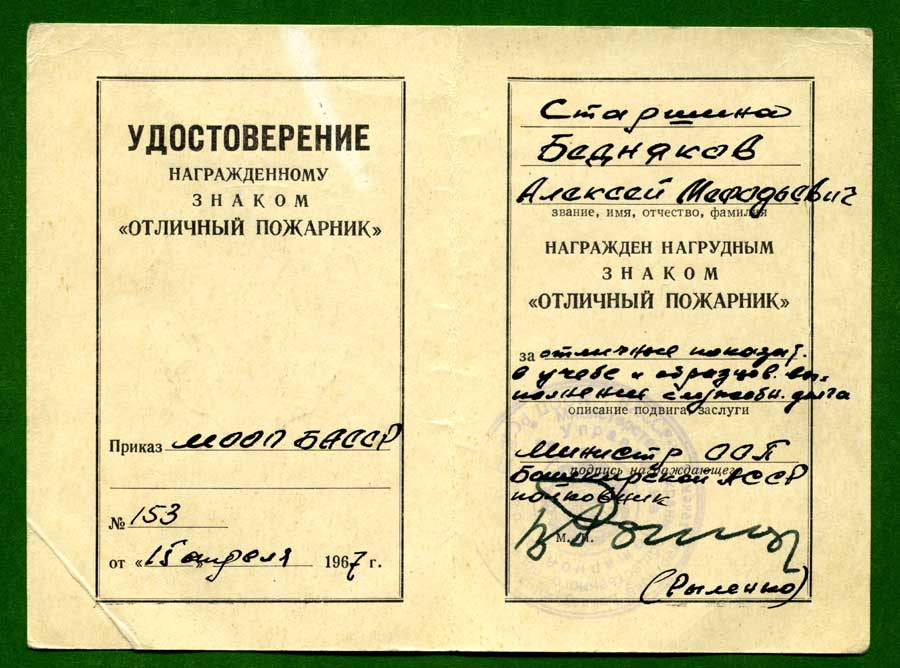 УДОСТОВЕРЕНИЕ
НАГРАЖДЕННОМУ
ЗНАКОМ
«ОТЛИЧНЫЙ ПОЖАРНИК»
Приказ МООП БАССР
№ 153
от «15» апреля 1967 г.
Старшина
Бедняков
Алексей Мефодьевич
звание, имя, отчество, фамилия
НАГРАЖДЕН НАГРУДНЫМ
ЗНАКОМ
«ОТЛИЧНЫЙ ПОЖАРНИК»
за отличные показат.
в учебе и образцов. вы-
полнение служебн. долга
описание подвига, заслуги
Министр ООП
подпись награждающего
Башкирской АССР
полковник
М. П.
(Рыленко)